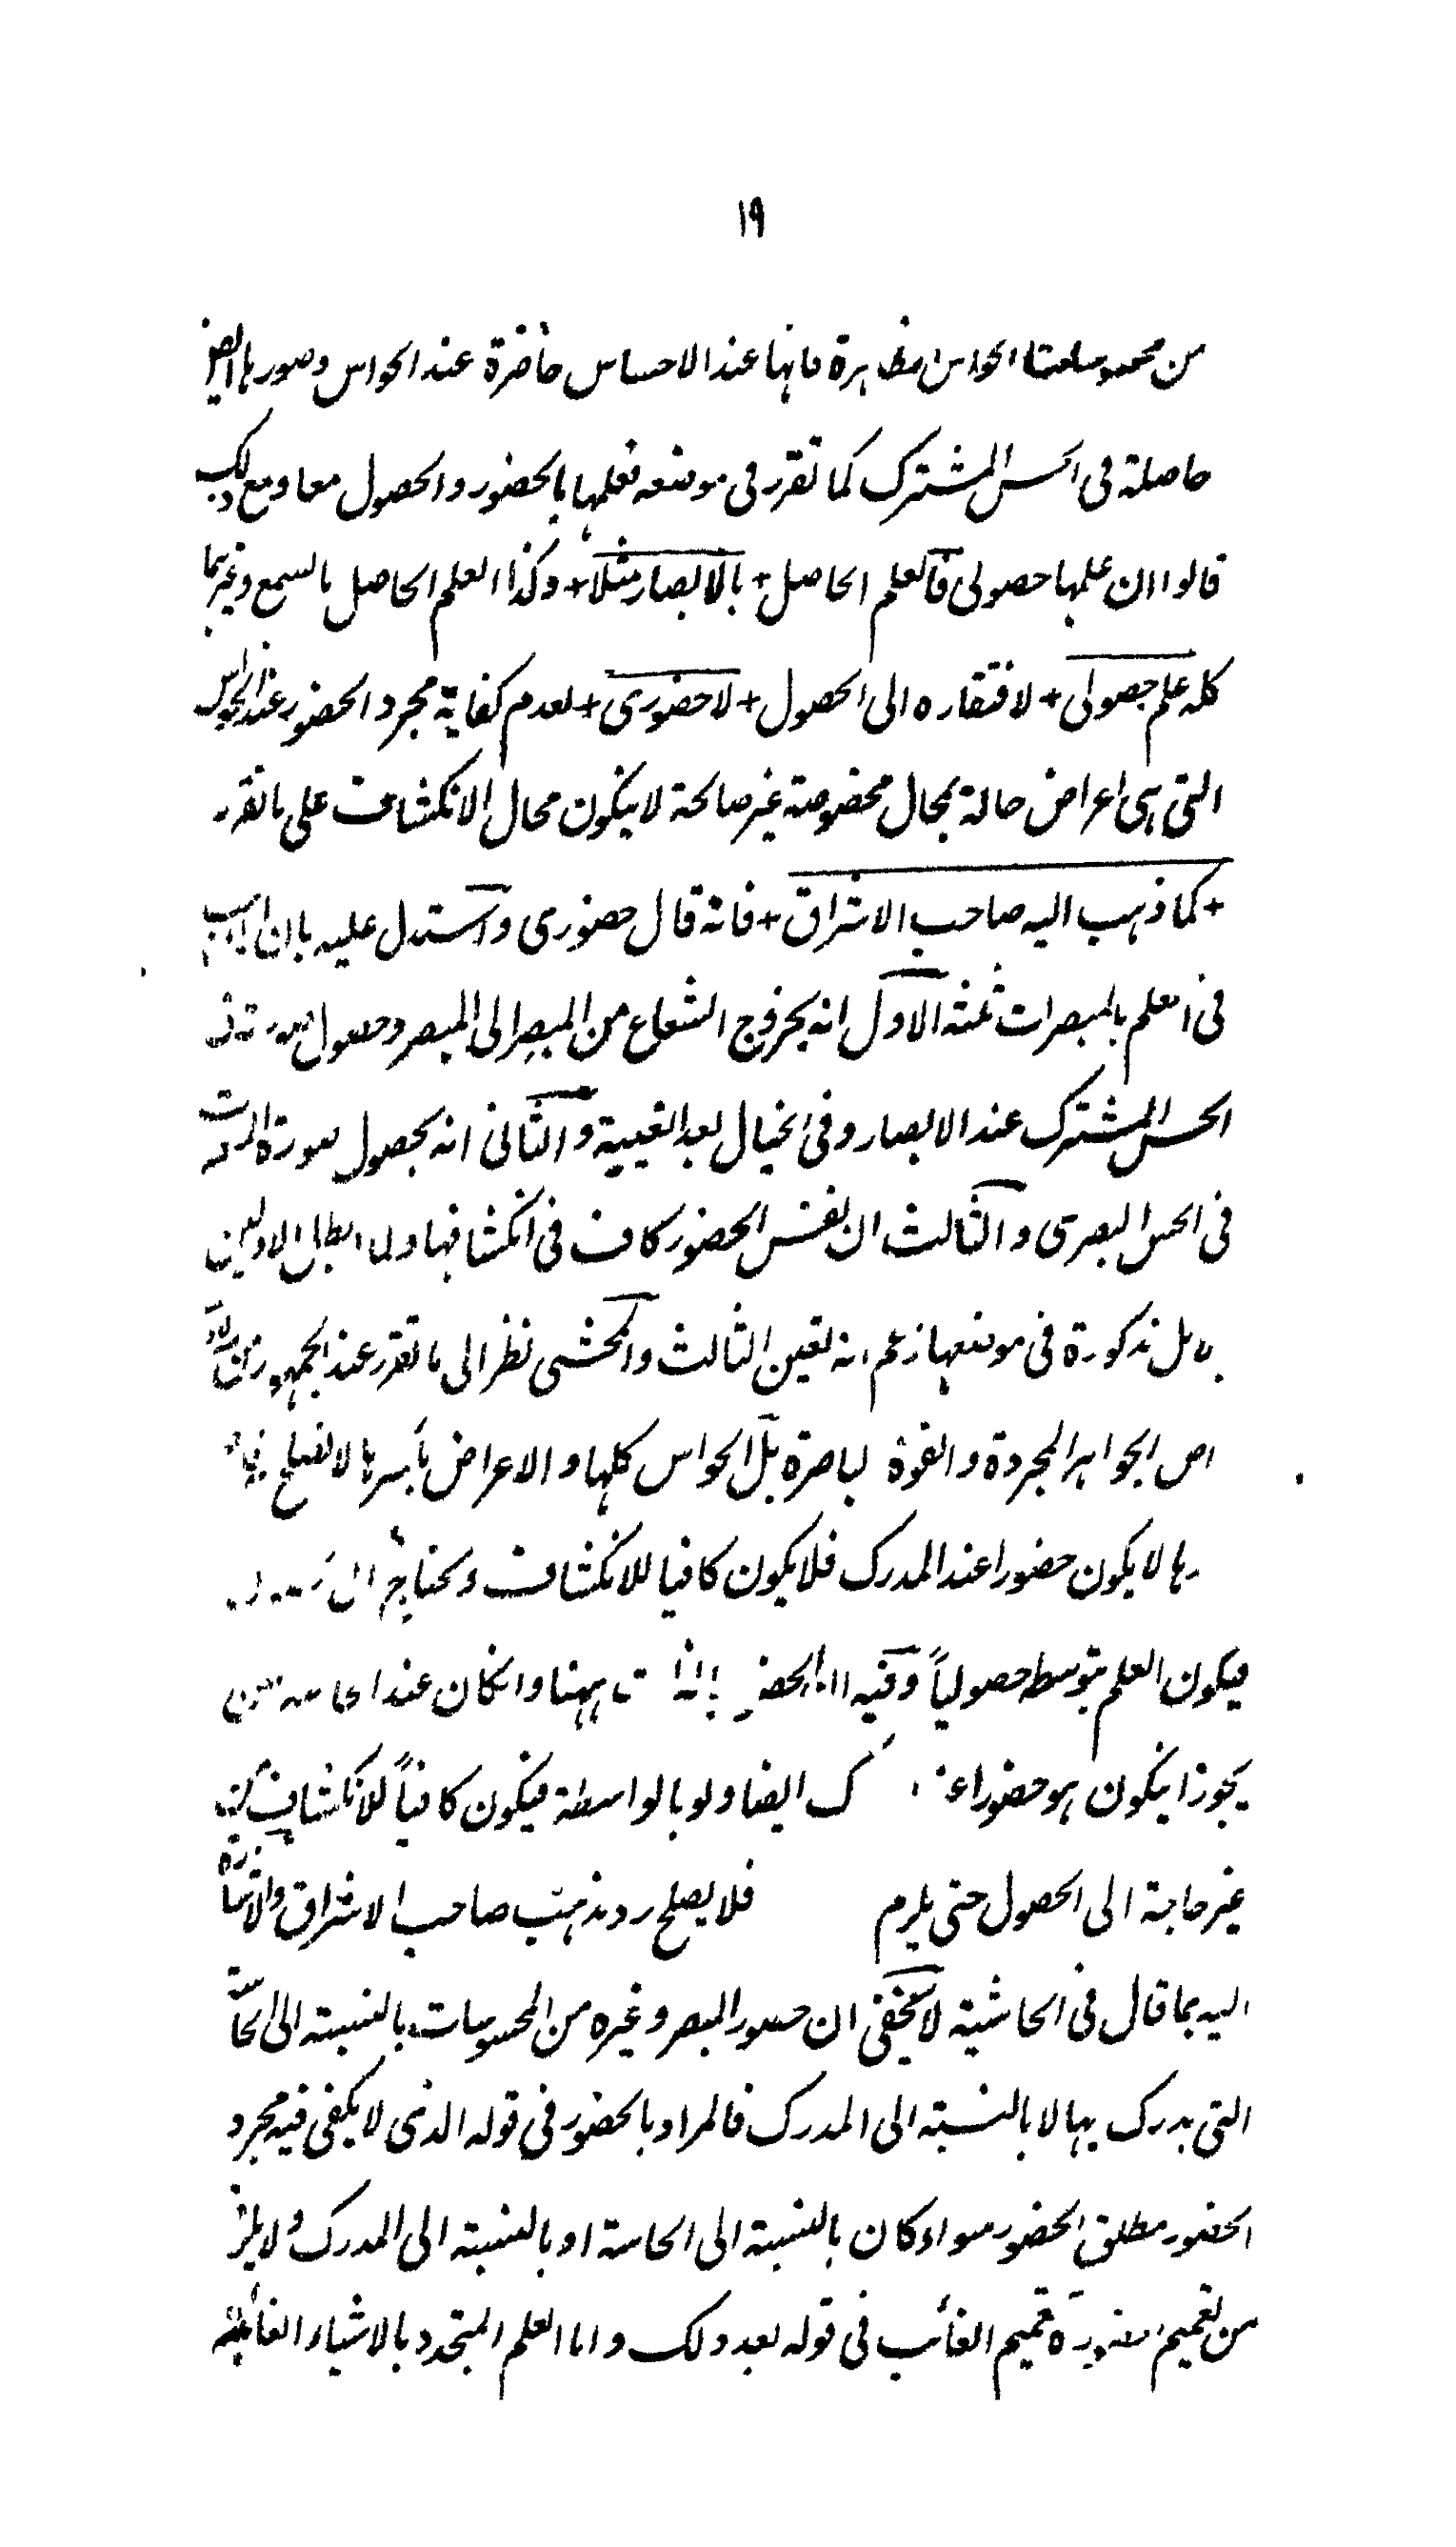 ١٩
من محسوسات الحواس الظاهرة فانها عند الاحساس حاضرة عند الحواس وصورها ايضا
حاصلة فى الحس المشترك كما تقرر فى موضعه فعلمها بالحضور والحصول معا ومع ذلك
قالوا ان علمها حصولى فالعلم الحاصل + بالابصار مثلا + وكذا العلم الحاصل بالسمع وغيرهما
كله علم حصولى + لافتقاره الى الحصول + لا حضورى + لعدم كفاية مجرد الحضور عند الحواس
التى هى اعراض حالة بمحال مخصوصة غير صالحة لا يكون محال الانكشاف على ما تقرر
+ كما ذهب اليه صاحب الاشراق + فانه قال حضورى واستدل عليه بان المذاهب
فى العلم بالمبصرات ثلثة الاول انه بخروج الشعاع من المبصر الى المبصر وحصول صورته فى
الحس المشترك عند الابصار وفى الخيال بعد الغيبة والثانى انه بحصول صورة المبصرات
فى الحس البصرى والثالث ان نفس الحضور كاف فى انكشافها ولما ابطل الاولين
بدلائل مذكورة فى موضعها زعم انه تعين الثالث والمحشى نظر الى ما تقرر عند الجمهور من
الجواهر المجردة والقوة الباصرة بل الحواس كلها والاعراض بأسرها لا تصلح
لا يكون حضورا عند المدرك فلا يكون كافيا للانكشاف ويحتاج الى
فيكون العلم بتوسط حصولياً وفيه ان الحضور بالذات ههنا وانكان عند الحاسة لكن
يجوز ان يكون هو حضورا عند المدرك ايضا ولو بالواسطة فيكون كافياً للانكشاف من
غير حاجة الى الحصول حتى يلزم فلا يصلح رد مذهب صاحب الاشراق والاشارة
اليه بما قال فى الحاشية لا يخفى ان حضور المبصر وغيره من المحسوسات بالنسبة الى الحاسة
التى يدرك بها لا بالنسبة الى المدرك فالمراد بالحضور فى قوله الذى لا يكفى فيه مجرد
الحضور مطلق الحضور سواء كان بالنسبة الى الحاسة او بالنسبة الى المدرك ولا يلزم
من تعميم الحضور تعميم الغائب فى قوله بعد ذلك واما العلم المتجدد بالاشياء الغائبة